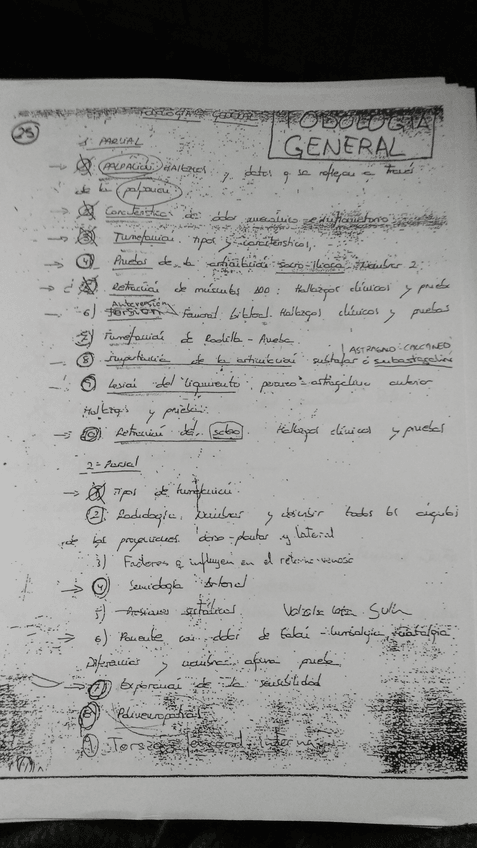 PODOLOGÍA GENERAL
PODOLOGÍA
GENERAL
25
1º PARCIAL
1) PALPACIÓN: Hallazgos y datos q se reflejan a través
de la palpación
2) Características del dolor mecánico e inflamatorio
3) Tumefacción tipos y características,
4) Pruebas de la articulación sacro-iliaca. Nombra 2.
5) Retracción de músculos : Hallazgos clínicos y prueba
6) Anteversión Femoral bilateral. Hallazgos clínicos y pruebas
Torsión
7) Tumefacción de Rodilla - Prueba
ASTRAGALO-CALCANEO
8) Importancia de la articulación subtalar o subastragalina
9) Lesión del ligamento peroneo-astragalino anterior
Hallazgos y pruebas.
10) Retracción del soleo Hallazgos clínicos y pruebas
2º Parcial
1) Tipos de tumefacción
2) Radiología, nombrar y describir todos los ángulos
de las proyecciones dorso-plantar y lateral
3) Factores q influyen en el retorno venoso
4) Semiología arterial
5)
6) Paciente con dolor de - lumbalgia,
Diferencias y nombra alguna prueba
7) Exploración de la sensibilidad
8) Polineuropatías
Torsión femoral interna